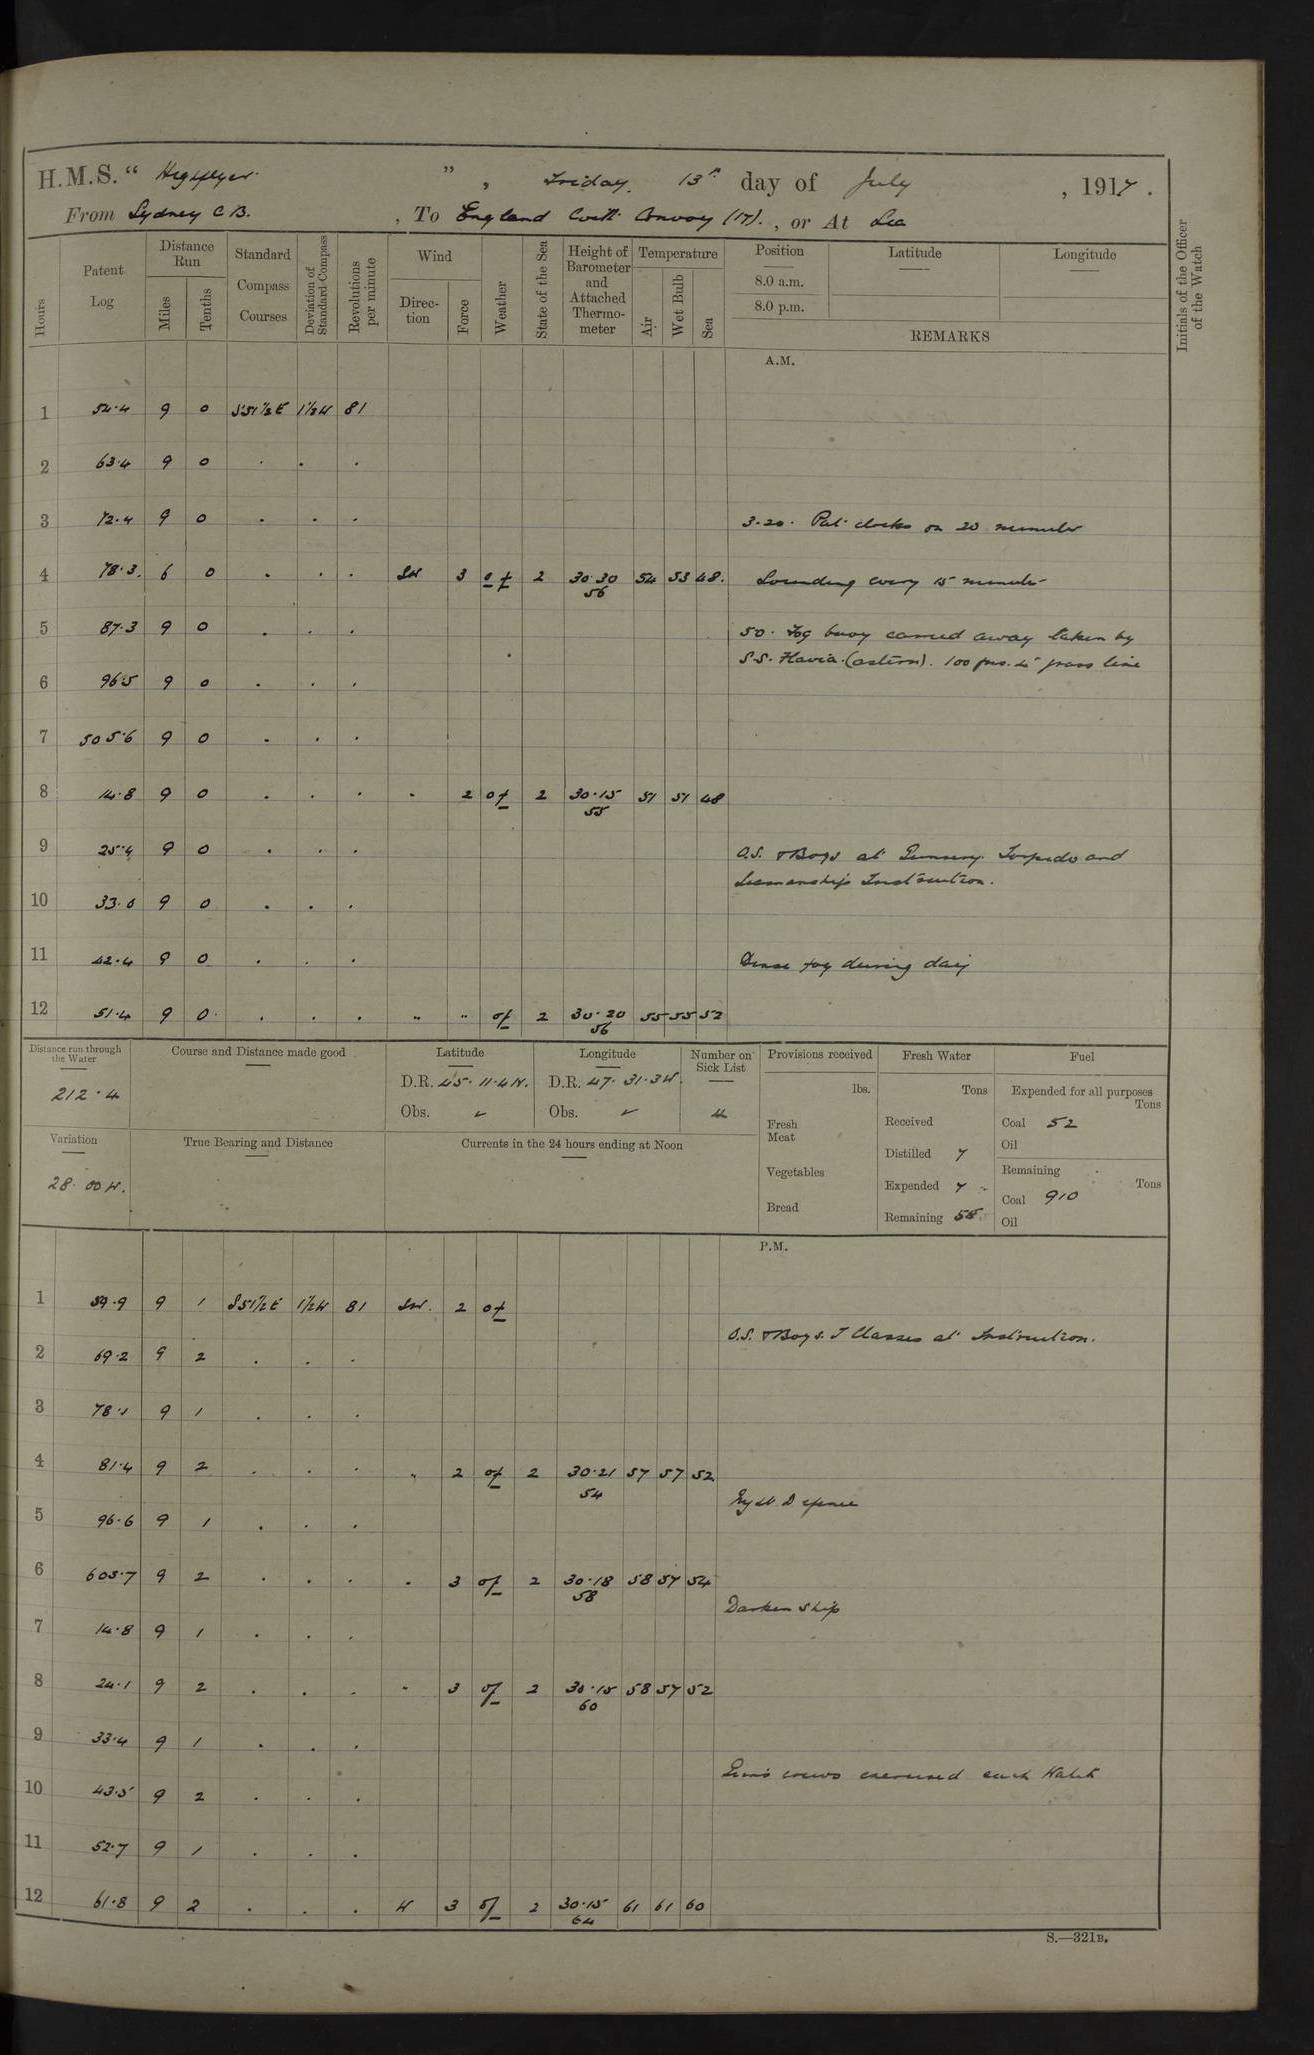 H.M.S. " Highflyer " , Friday 13th day of July , 1917 .
From Sydney C B. , To England with Convoy (17). , or At Sea
Hours
Patent Log
Distance Run
Miles
Tenths
Standard Compass Courses
Deviation of Standard Compass
Revolutions per minute
Wind
Direction
Force
Weather
State of the Sea
Height of Barometer and Attached Thermometer
Temperature
Air
Wet Bulb
Sea
Position
Latitude
Longitude
8.0 a.m.
8.0 p.m.
REMARKS
Initials of the Officer of the Watch
A.M.
1 54.4 9 0 S51½E 1½W 81
2 63.4 9 0 . . .
3 72.4 9 0 . . . 3-20. Put clocks on 20 minutes
4 78.3 6 0 . . . SW 3 o f 2 30.30 54 53 48. Sounding every 15 minutes
56
5 87.3 9 0 . . . 50. Fog buoy carried away taken by
S.S. Flavia. (astern). 100 fms. grass line
6 96.5 9 0 . . .
7 505.6 9 0 . . .
8 14.8 9 0 . . . . 2 o f 2 30.15 51 51 48
55
9 25.4 9 0 . . . O.S. & Boys at Gunnery Torpedo and
Seamanship Instruction.
10 33.0 9 0 . . .
11 42.4 9 0 . . . Dense fog during day
12 51.4 9 0 . . . " " of 2 30.20 55 55 52
56
Distance run through the Water
212.4
Course and Distance made good
Latitude
D.R. 45.11.4N.
Obs. ✓
Longitude
D.R. 47.31.3W.
Obs. ✓
Number on Sick List
4
Provisions received
lbs.
Fresh Meat
Vegetables
Bread
Fresh Water
Tons
Received
Distilled 7
Expended 7
Remaining 58
Fuel
Expended for all purposes
Tons
Coal 52
Oil
Remaining
Tons
Coal 910
Oil
Variation
28.00W.
True Bearing and Distance
Currents in the 24 hours ending at Noon
P.M.
1 59.9 9 1 S51½E 1½W 81 SW. 2 of
O.S. & Boys. T Classes at Instruction.
2 69.2 9 2 . . .
3 78.1 9 1 . . .
4 81.4 9 2 . . . " 2 of 2 30.21 57 57 52
54
5 96.6 9 1 . . . Defence
6 605.7 9 2 . . . . 3 of 2 30.18 58 57 54
58
Darken Ship
7 14.8 9 1 . . .
8 24.1 9 2 . . . " 3 of 2 30.15 58 57 52
60
9 33.4 9 1 . . .
Guns crews exercised each Watch
10 43.5 9 2 . . .
11 52.7 9 1 . . .
12 61.8 9 2 . . . W 3 of 2 30.15 61 61 60
64
S.—321B.